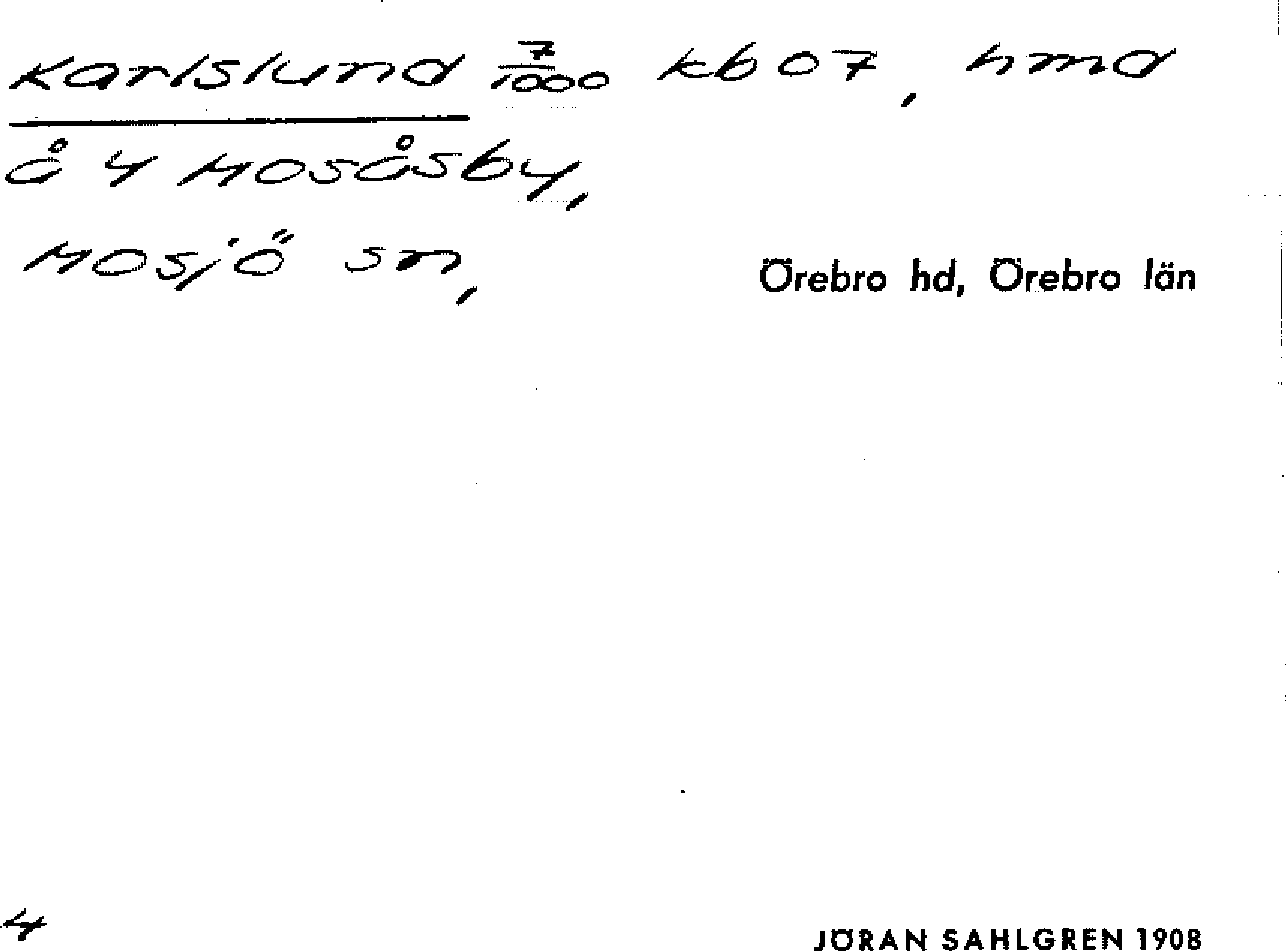 Karlslund 7/1000 kb 07, hmd
å 4 Mosåsby,
Mosjö sn,
Örebro hd, Örebro län
4
JÖRAN SAHLGREN 1908